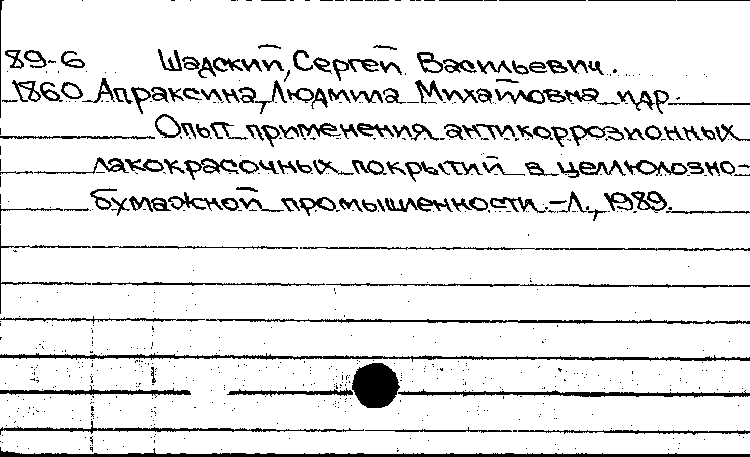 89-6 Шадский, Сергей Васильевич.
1860 Апраксина, Людмила Михайловна и др.
Опыт применения антикоррозионных
лакокрасочных покрытий в целлюлозно-
бумажной промышленности. – Л., 1989.